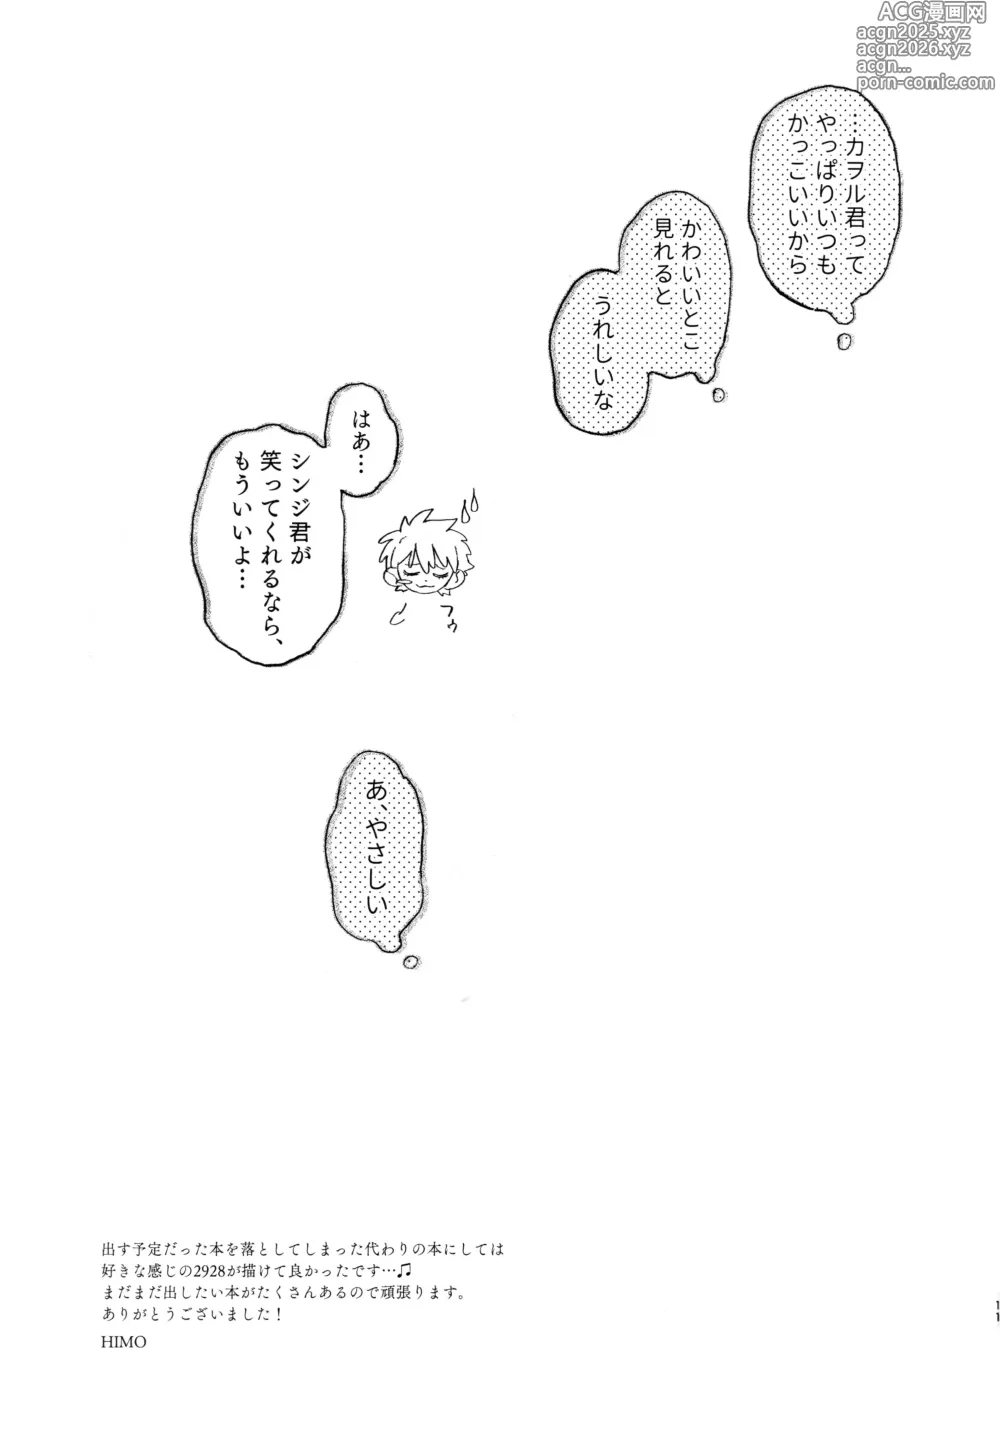 ACG漫画网
acgn2025.xyz
acgn2026.xyz
acgn...
porn-comic.com
…カヲル君って
やっぱりいつも
かっこいいから
かわいいとこ
見れると
うれしいな
はあ…
シンジ君が
笑ってくれるなら、
もういいよ…
フゥ
あ、やさしい
出す予定だった本を落としてしまった代わりの本にしては
好きな感じの2928が描けて良かったです…♫
まだまだ出したい本がたくさんあるので頑張ります。
ありがとうございました！
HIMO
11